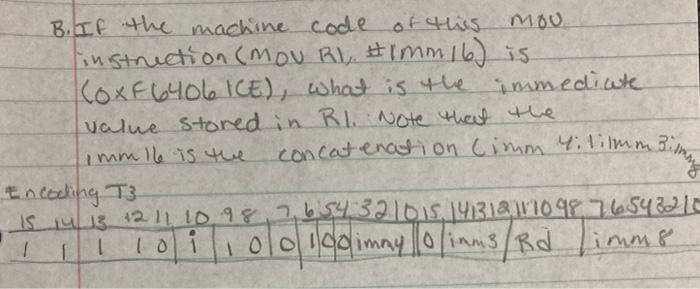 B. If the machine code of this mov
instruction (MOV R1, #Imm16) is
(0xF64061CE), what is the immediate
value stored in R1. Note that the
imm16 is the concatenation (imm 4:1:imm3:imm8
Encoding T3
15 14 13 12 11 10 9 8 7 6 5 4 3 2 1 0 15 14 13 12 11 10 9 8 7 6 5 4 3 2 1 0
1 1 1 1 0 i 1 0 0 1 0 0 imm4 0 imm3 Rd imm8